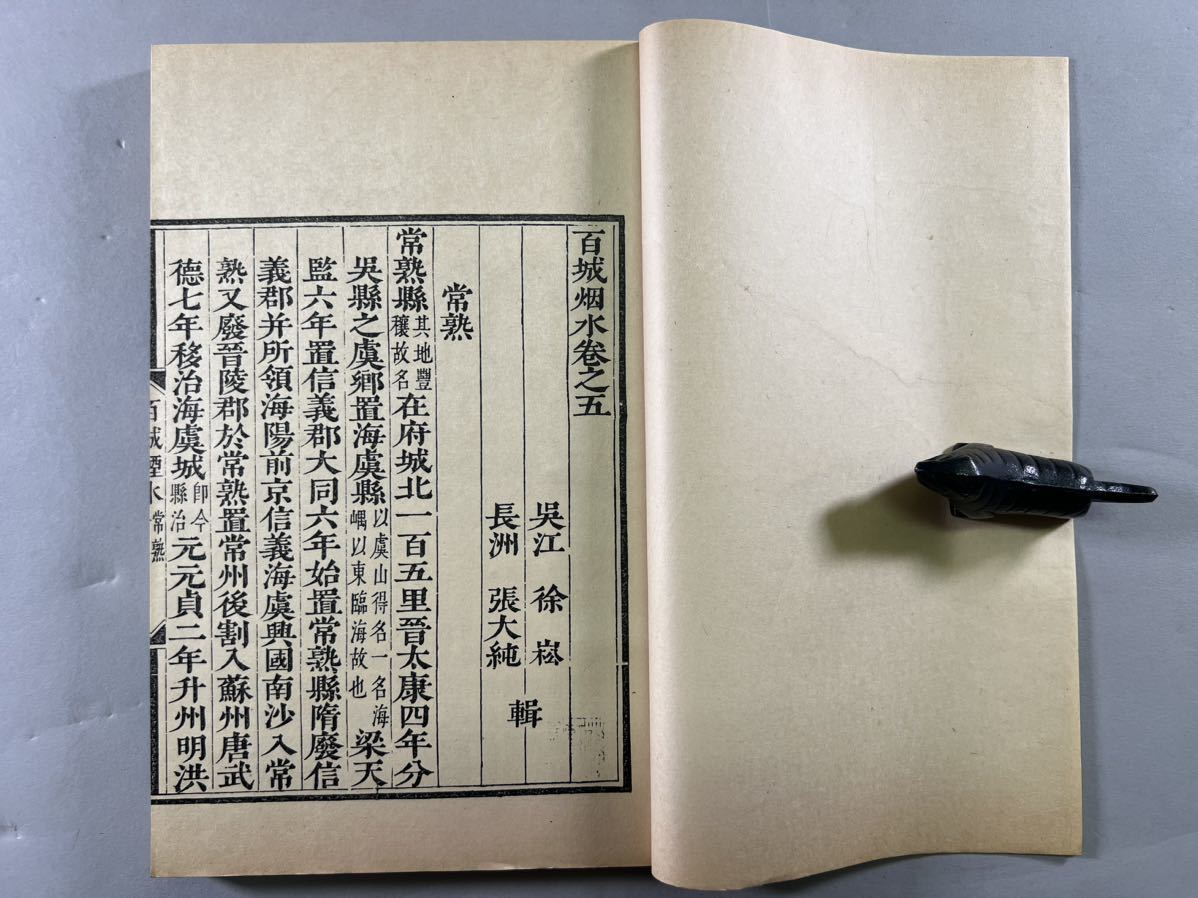 百城烟水卷之五
吳江 徐崧
長洲 張大純
輯
常熟
常熟縣其地豐穰故名在府城北一百五里晉太康四年分
吳縣之虞鄉置海虞縣以虞山得名一名海嵎以東臨海故也梁天
監六年置信義郡大同六年始置常熟縣隋廢信
義郡并所領海陽前京信義海虞興國南沙入常
熟又廢晉陵郡於常熟置常州後割入蘇州唐武
德七年移治海虞城即今縣治元元貞二年升州明洪
百城煙水 常熟